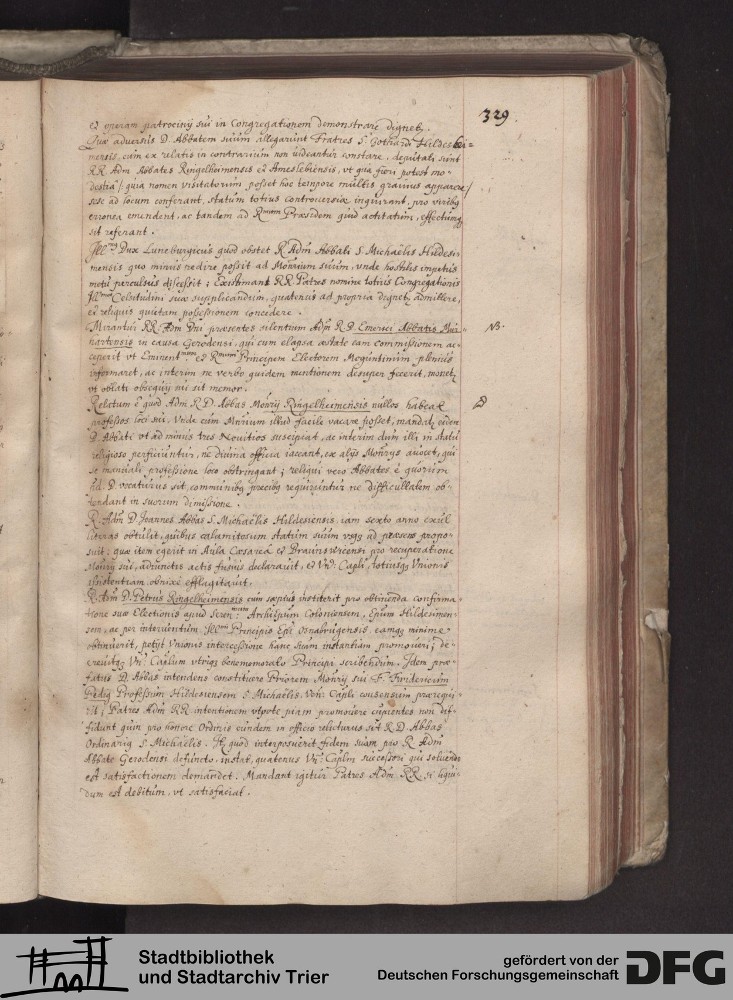 329
et meram patrocinÿ sui in Congregationem demonstrare dignet.
Quæ adversus D. Abbatem suum allegarunt Fratres S. Gothardi Hildeshei-
mensis, cum ex relatis in contrarium non videantur constare, deputati sunt
RR. Adm Abbates Ringelheimensis et Ameslebiensis, ut qua fieri potest mo-
destia /: quia nomen visitatorum posset hoc tempore multis gravius apparere :/
sese ad locum conferant, statum totius controversiæ inquirant, pro virib9
erronea emendent, ac tandem ad Rmum Præsidem quid actitatum, effectumq
sit referant.
Illmus Dux Luneburgicus quod obstet R. Adm Abbati S. Michaëlis Hildesie-
mensis quo minus redire possit ad Monrium suum, unde hostilis impetus
metu perculsus discessit; Existimant RR. Patres nomine totius Congregationis
Illmæ Celsitudini suæ supplicandum, quatenus ad propria dignet admittere,
et reliquis quietam possessionem concedere.
Mirantur RR. Adm Dni præsentes silentium Adm R. D. Emerici Abbatis Qui-
nartensis in causa Gerodensi, qui cum elapsa æstate eam commissionem ac-
ceperit ut Eminentmum et Rmum Principem Electorem Moguntinum plenius
informaret, ac interim ne verbo quidem mentionem desuper fecerit, monet
ut oblati obsequÿ sui sit memor.
NB.
Relatum e quod Adm R. D. Abbas Monrÿ Ringelheimensis nullos habeat
professos loci sui, Unde cum Monrium illud facile vacare posset, mandat eidem
D. Abbati ut ad minus tres Novitios suscipiat, ac interim dum illi in statu
religioso perficiuntur, ne divina officia iaceant, ex alÿs Monrÿs avocet, qui
se manuali professione loco obstringant; reliqui vero Abbates e quorum
ad D. vocaturus sit, communib9 precib9 requiruntur ne difficultatem os-
tendant in suorum dimissione.
R. Adm D. Joannes Abbas S. Michaëlis Hildesiensis, iam sexto anno exul
literas obtulit, quibus calamitosum statum suum usq ad præsens propo-
suit; quæ item egerit in Aula Cæsarea et Brauniswicensi pro recuperatione
Monrÿ sui, adiunctis actis fusius declaravit, et Vn. Capli, totiusq Unionis
assistentiam obnixe efflagitavit.
R. Adm D. Petrus Ringelheimensis cum sæpius institerit pro obtinenda confirma-
tione suæ Electionis apud Serenmum Archiepum Coloniensem, Epum Hildesimen-
sem, ac per interventum Illmi Principis Epi Osnabrugensis, eamq minime
obtinuerit, petyt Unionis intercessione hanc suam instantiam promoveri; de-
crevitq Vn. Caplum utriq benememorato Principi scribendum. Idem præ-
fatus D. Abbas intendens constituere Priorem Monrÿ sui F. Fridericum
Pedig Professum Hildesiensem S. Michaëlis, Ven. Capli consensum prærequi-
rit; Patres Adm RR. intentionem utpote piam promovere cupientes non dif-
fidunt quin pro honore Ordinis eundem in officio relicturus sit R. D. Abbas
Ordinari9 S. Michaëlis. It. quod interposuerit fidem suam pro R. Adm
Abbate Gerodensi defuncto, instat, quatenus Vn. Caplm successori qui solvendo
est satisfactionem demandet. Mandant igitur Patres Adm RR. si liqui-
dum est debitum, ut satisfaciat.
Stadtbibliothek
und Stadtarchiv Trier
gefördert von der
Deutschen Forschungsgemeinschaft
DFG